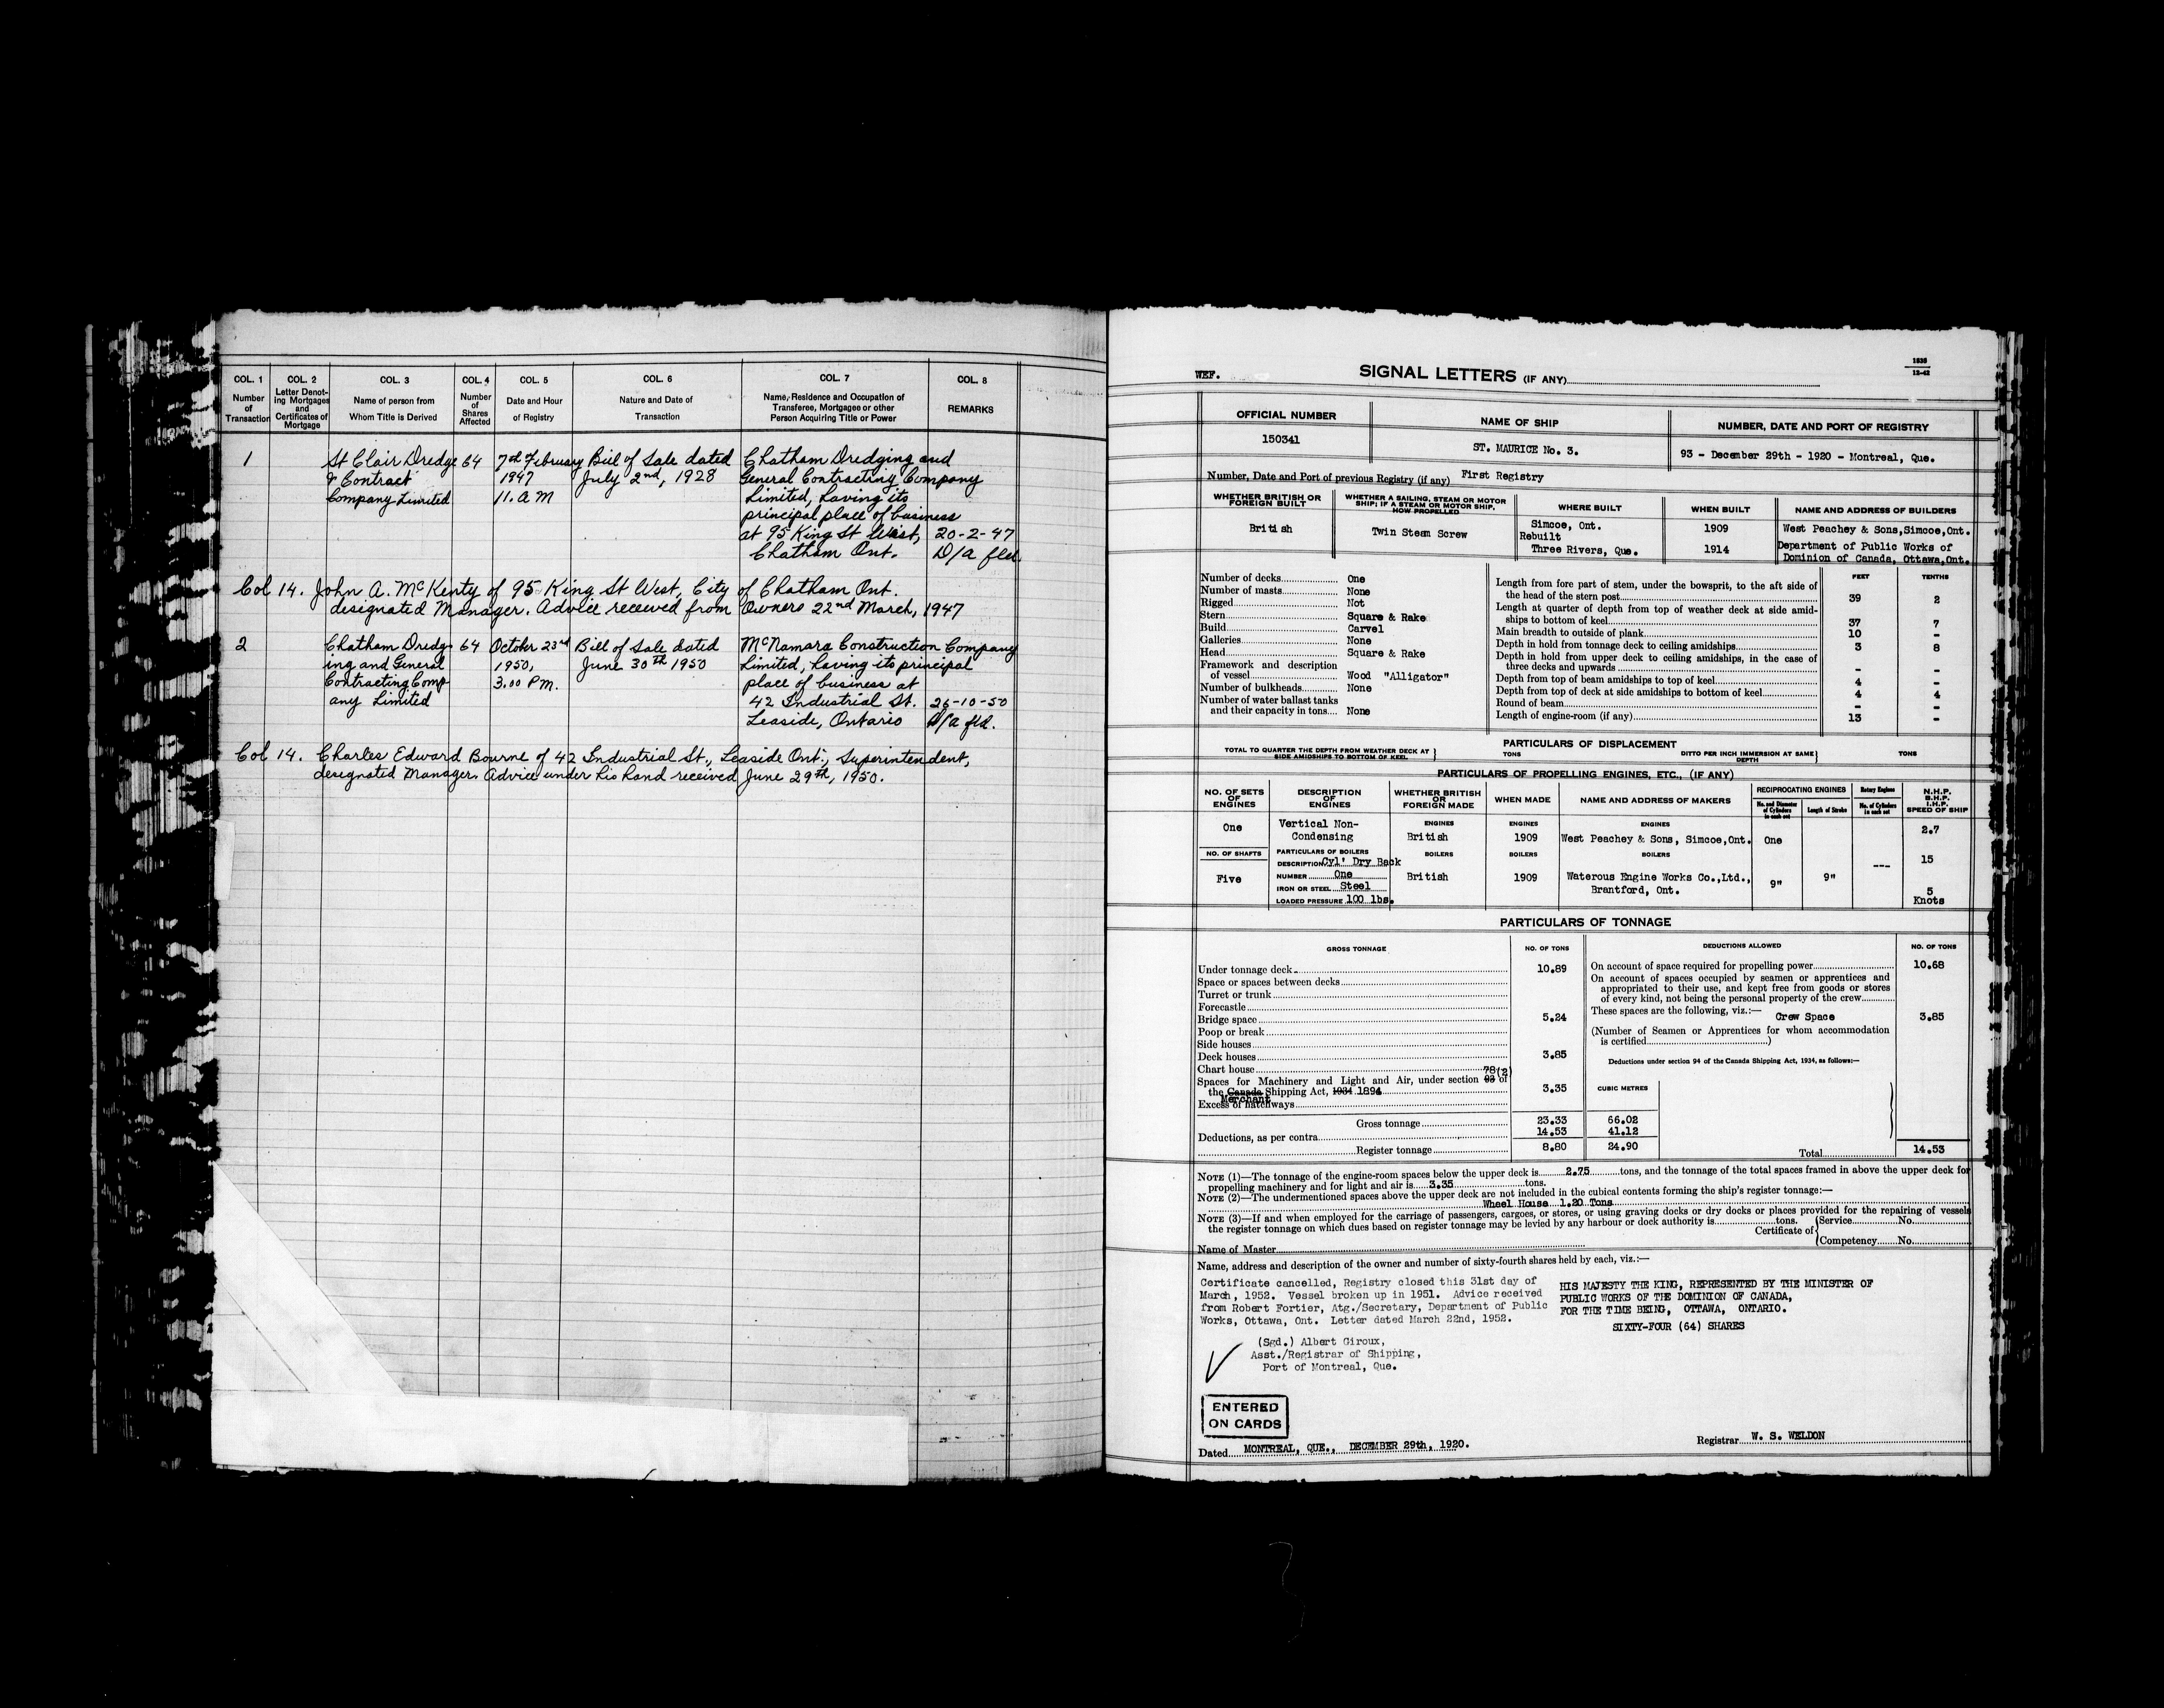 COL. 1 COL. 2 COL. 3 COL. 4 COL. 5 COL. 6 COL. 7 COL. 8
Number of Transaction
Letter Denoting Mortgages and Certificates of Mortgage
Name of person from Whom Title is Derived
Number of Shares Affected
Date and Hour of Registry
Nature and Date of Transaction
Name, Residence and Occupation of Transferee, Mortgagee or other Person Acquiring Title or Power
REMARKS
1 St Clair Dredge 64 7th February Bill of Sale dated Chatham Dredging and
& Contract 1947 July 2nd, 1928 General Contracting Company
Company Limited 11. A M Limited, having its
principal place of business
at 95 King St West, 20-2-47
Chatham Ont. D/a fld.
Col 14. John A. McKenty of 95 King St West, City of Chatham Ont.
designated Manager. Advice received from Owners 22nd March, 1947
2 Chatham Dredg- 64 October 23rd Bill of Sale dated McNamara Construction Company
ing and General 1950, June 30th 1950 Limited, having its principal
Contracting Comp- 3.00 P.M. place of business at
any Limited 42 Industrial St. 26-10-50
Leaside, Ontario D/a fld.
Col 14. Charles Edward Bourne of 42 Industrial St., Leaside Ont., Superintendent,
designated Manager. Advice under his hand received June 29th, 1950.
1935
12-42
WEF. SIGNAL LETTERS (IF ANY)
OFFICIAL NUMBER NAME OF SHIP NUMBER, DATE AND PORT OF REGISTRY
150341 ST. MAURICE No. 3. 93 - December 29th - 1920 - Montreal, Que.
Number, Date and Port of previous Registry (if any) First Registry
WHETHER BRITISH OR FOREIGN BUILT
WHETHER A SAILING, STEAM OR MOTOR SHIP; IF A STEAM OR MOTOR SHIP, HOW PROPELLED
WHERE BUILT WHEN BUILT NAME AND ADDRESS OF BUILDERS
British Twin Steam Screw Simcoe, Ont. 1909 West Peachey & Sons,Simcoe,Ont.
Rebuilt
Three Rivers, Que. 1914 Department of Public Works of
Dominion of Canada, Ottawa,Ont.
Number of decks One
Number of masts None
Rigged Not
Stern Square & Rake
Build Carvel
Galleries None
Head Square & Rake
Framework and description
of vessel Wood "Alligator"
Number of bulkheads None
Number of water ballast tanks
and their capacity in tons None
FEET TENTHS
Length from fore part of stem, under the bowsprit, to the aft side of
the head of the stern post 39 2
Length at quarter of depth from top of weather deck at side amid-
ships to bottom of keel 37 7
Main breadth to outside of plank 10 -
Depth in hold from tonnage deck to ceiling amidships 3 8
Depth in hold from upper deck to ceiling amidships, in the case of
three decks and upwards - -
Depth from top of beam amidships to top of keel 4 -
Depth from top of deck at side amidships to bottom of keel 4 4
Round of beam - -
Length of engine-room (if any) 13 -
PARTICULARS OF DISPLACEMENT
TOTAL TO QUARTER THE DEPTH FROM WEATHER DECK AT SIDE AMIDSHIPS TO BOTTOM OF KEEL } TONS DITTO PER INCH IMMERSION AT SAME DEPTH } TONS
PARTICULARS OF PROPELLING ENGINES, ETC., (IF ANY)
NO. OF SETS OF ENGINES
DESCRIPTION OF ENGINES
WHETHER BRITISH OR FOREIGN MADE
WHEN MADE
NAME AND ADDRESS OF MAKERS
RECIPROCATING ENGINES
No. and Diameter of Cylinders in each set
Length of Stroke
Rotary Engines
No. of Cylinders in each set
N.H.P.
B.H.P.
I.H.P.
SPEED OF SHIP
ENGINES ENGINES ENGINES
One Vertical Non- 2.7
Condensing British 1909 West Peachey & Sons, Simcoe,Ont. One
NO. OF SHAFTS PARTICULARS OF BOILERS BOILERS BOILERS BOILERS
DESCRIPTION Cyl' Dry Back 15
Five NUMBER One British 1909 Waterous Engine Works Co.,Ltd., 9" 9" ---
IRON OR STEEL Steel Brantford, Ont. 5
LOADED PRESSURE 100 lbs. Knots
PARTICULARS OF TONNAGE
GROSS TONNAGE NO. OF TONS DEDUCTIONS ALLOWED NO. OF TONS
Under tonnage deck 10.89
Space or spaces between decks
Turret or trunk
Forecastle
Bridge space 5.24
Poop or break
Side houses
Deck houses 3.85
Chart house
Spaces for Machinery and Light and Air, under section 93 78(2) of
the Canada Merchant Shipping Act, 1934 1894 3.35
Excess of hatchways
Gross tonnage 23.33 66.02
Deductions, as per contra 14.53 41.12
Register tonnage 8.80 24.90
On account of space required for propelling power 10.68
On account of spaces occupied by seamen or apprentices and
appropriated to their use, and kept free from goods or stores
of every kind, not being the personal property of the crew
These spaces are the following, viz.:— Crew Space 3.85
(Number of Seamen or Apprentices for whom accommodation
is certified )
Deductions under section 94 of the Canada Shipping Act, 1934, as follows:—
CUBIC METRES
Total 14.53
NOTE (1)—The tonnage of the engine-room spaces below the upper deck is 2.75 tons, and the tonnage of the total spaces framed in above the upper deck for
propelling machinery and for light and air is 3.35 tons.
NOTE (2)—The undermentioned spaces above the upper deck are not included in the cubical contents forming the ship's register tonnage:—
Wheel House 1.20 Tons
NOTE (3)—If and when employed for the carriage of passengers, cargoes, or stores, or using graving docks or dry docks or places provided for the repairing of vessels
the register tonnage on which dues based on register tonnage may be levied by any harbour or dock authority is tons.
Certificate of { Service No.
Competency No.
Name of Master
Name, address and description of the owner and number of sixty-fourth shares held by each, viz.:—
Certificate cancelled, Registry closed this 31st day of
March, 1952. Vessel broken up in 1951. Advice received
from Robert Fortier, Atg./Secretary, Department of Public
Works, Ottawa, Ont. Letter dated March 22nd, 1952.
(Sgd.) Albert Giroux,
Asst./Registrar of Shipping,
Port of Montreal, Que.
HIS MAJESTY THE KING, REPRESENTED BY THE MINISTER OF
PUBLIC WORKS OF THE DOMINION OF CANADA,
FOR THE TIME BEING, OTTAWA, ONTARIO.
SIXTY-FOUR (64) SHARES
ENTERED
ON CARDS
Dated MONTREAL, QUE., DECEMBER 29th, 1920.
Registrar W. S. WELDON